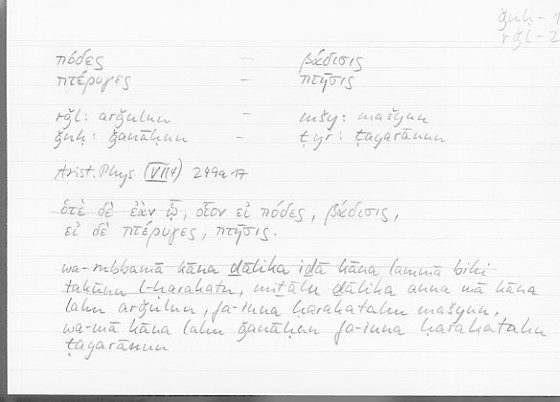 ǧnḥ – 1
rǧl – 2
πόδες – βάδισις
πτέρυγες – πτῆσις
rǧl: arǧulun – mšy: mašyun
ǧnḥ: ǧanāḥun – ṭyr: ṭayarānun
Arist. Phys. (VII 4) 249a 17
ὁτὲ δὲ ἐὰν ᾖ, οἷον εἰ πόδες, βάδισις,
εἰ δὲ πτέρυγες, πτῆσις.
wa-rubbamā kāna ḏālika iḏā kāna lammā bihi
takūnu l-ḥarakatu, miṯālu ḏālika anna mā kāna
lahu arǧulun, fa-inna ḥarakatahu mašyun,
wa-mā kāna lahu ǧanāḥun fa-inna ḥarakatahu
ṭayarānun